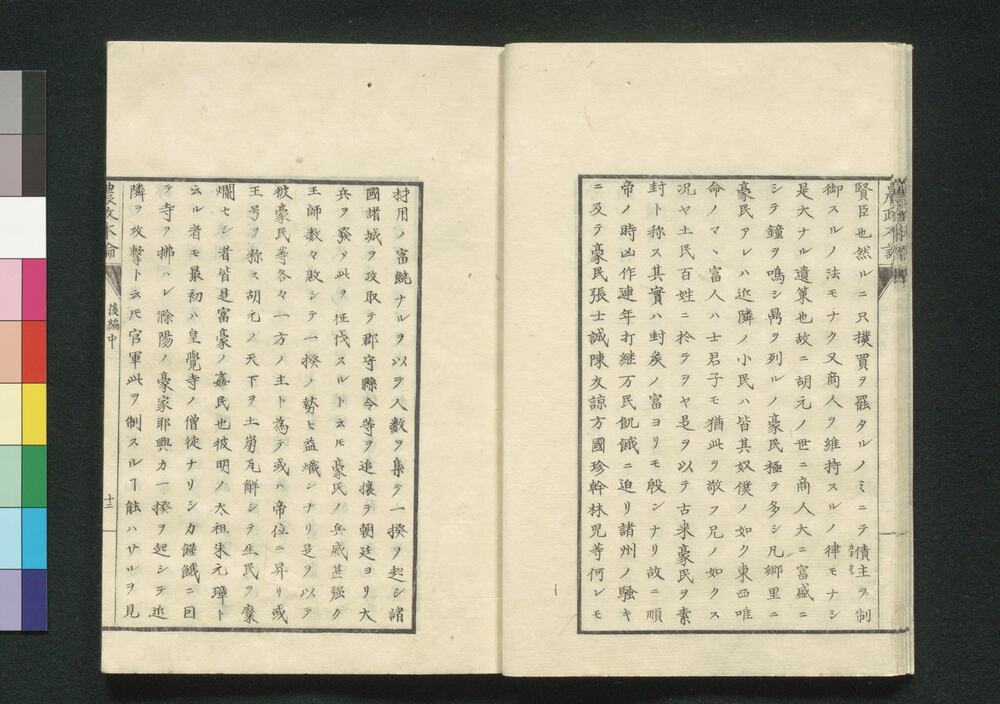 賢臣也然ルニ只撲買ヲ罷タルノミニテ債主ヲ制
御スルノ法モナク又商人ヲ維持スルノ律モナシ
是大ナル遺策也故ニ胡元ノ世ニ商人大ニ富盛ニ
シテ鐘ヲ鳴シ鼎ヲ列ルノ豪民極テ多シ凡郷里ニ
豪民アレハ近隣ノ小民ハ皆其奴僕ノ如ク東西唯
命ノマヽ富人ハ士君子モ猶此ヲ敬フ兄ノ如クス
況ヤ土民百姓ニ於テヲヤ是ヲ以テ古来豪民ヲ素
封ト称ス其實ハ封矦ノ富ヨリモ殷ンナリ故ニ順
帝ノ時凶作連年打継万民飢餓ニ迫リ諸州ノ騒キ
ニ及テ豪民張士誠陳友諒方國珍幹林児等何レモ
農政本論
後編中
十三
財用ノ富饒ナルヲ以テ人数ヲ集テ一揆ヲ起シ諸
國諸城ヲ攻取テ郡守縣令等ヲ追攘テ朝廷ヨリ大
兵ヲ發リ此ヲ征伐スルト云𪜈豪民ノ兵威甚強ク
王師数々敗シテ一揆ノ勢ヒ益熾シナリ是ヲ以テ
彼豪民等各々一方ノ主ト為テ或ハ帝位ニ昇リ或
王号ヲ称ス胡元ノ天下ヲ土崩瓦解シテ生民ヲ糜
爛セシ者皆是富豪ノ姦民也彼明ノ大祖朱元璋ト
云ル者モ最初ハ皇覺寺ノ僧徒ナリシカ饉餓ニ因
テ寺ヲ拂ハレ滁陽ノ豪家耶興カ一揆ヲ起シテ近
隣ヲ攻撃ト云𪜈官軍此ヲ制スルヿ能ハサルヲ見